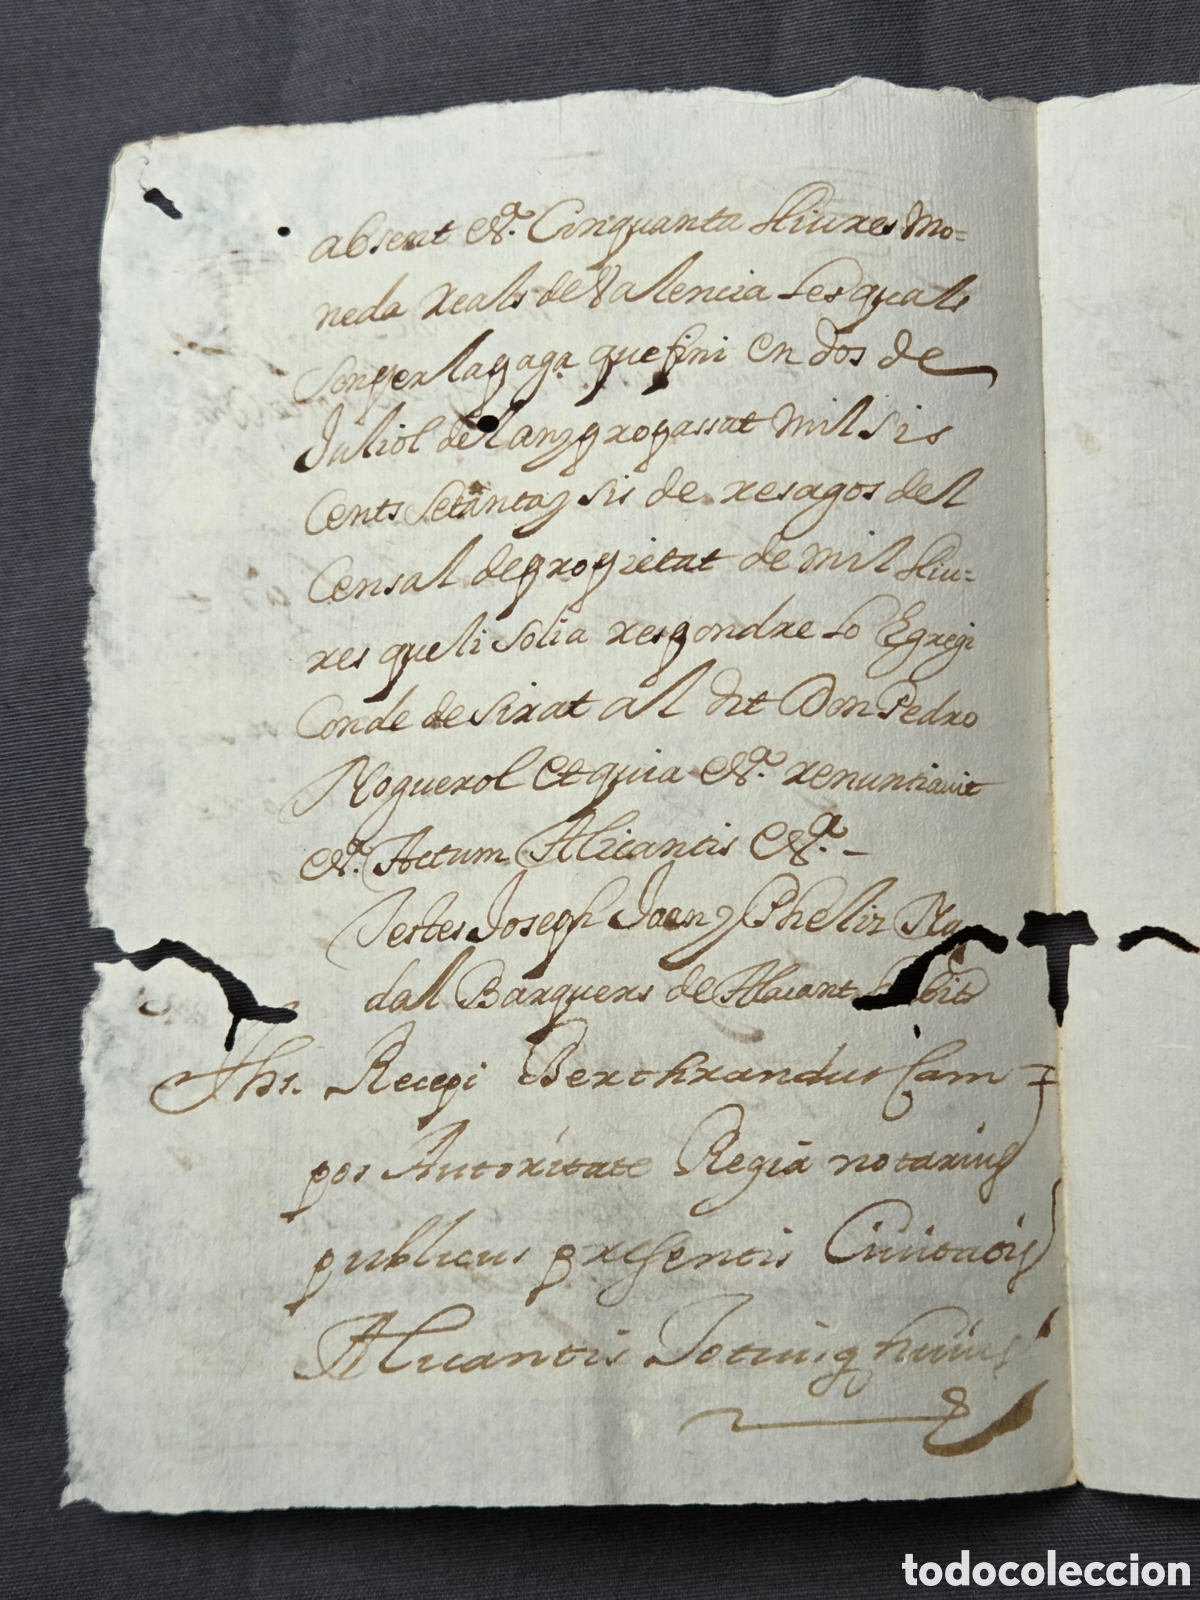 absent &ª. Cinquanta lliures Mo=
neda reals de Valencia les quals
son per la paga que fini en dos de
Juliol del any propassat mil sis
Cents Setanta y sis de resagos del
Censal de propietat de mil lliu=
res que li solia respondre lo Egregi
Conde de Sirat al dit Don Pedro
Noguerol Et quia &ª. renuntiavit
&ª. Actum Alicantis &ª. –
Testes Joseph Juan y Pheliz Na
dal Barquers de Alacant
Ihs. Recepi Berthrandus Cam=
pos Autoritate Regia notarius
publicus presentis Civitatis
Alicantis Totiusq
todocoleccion